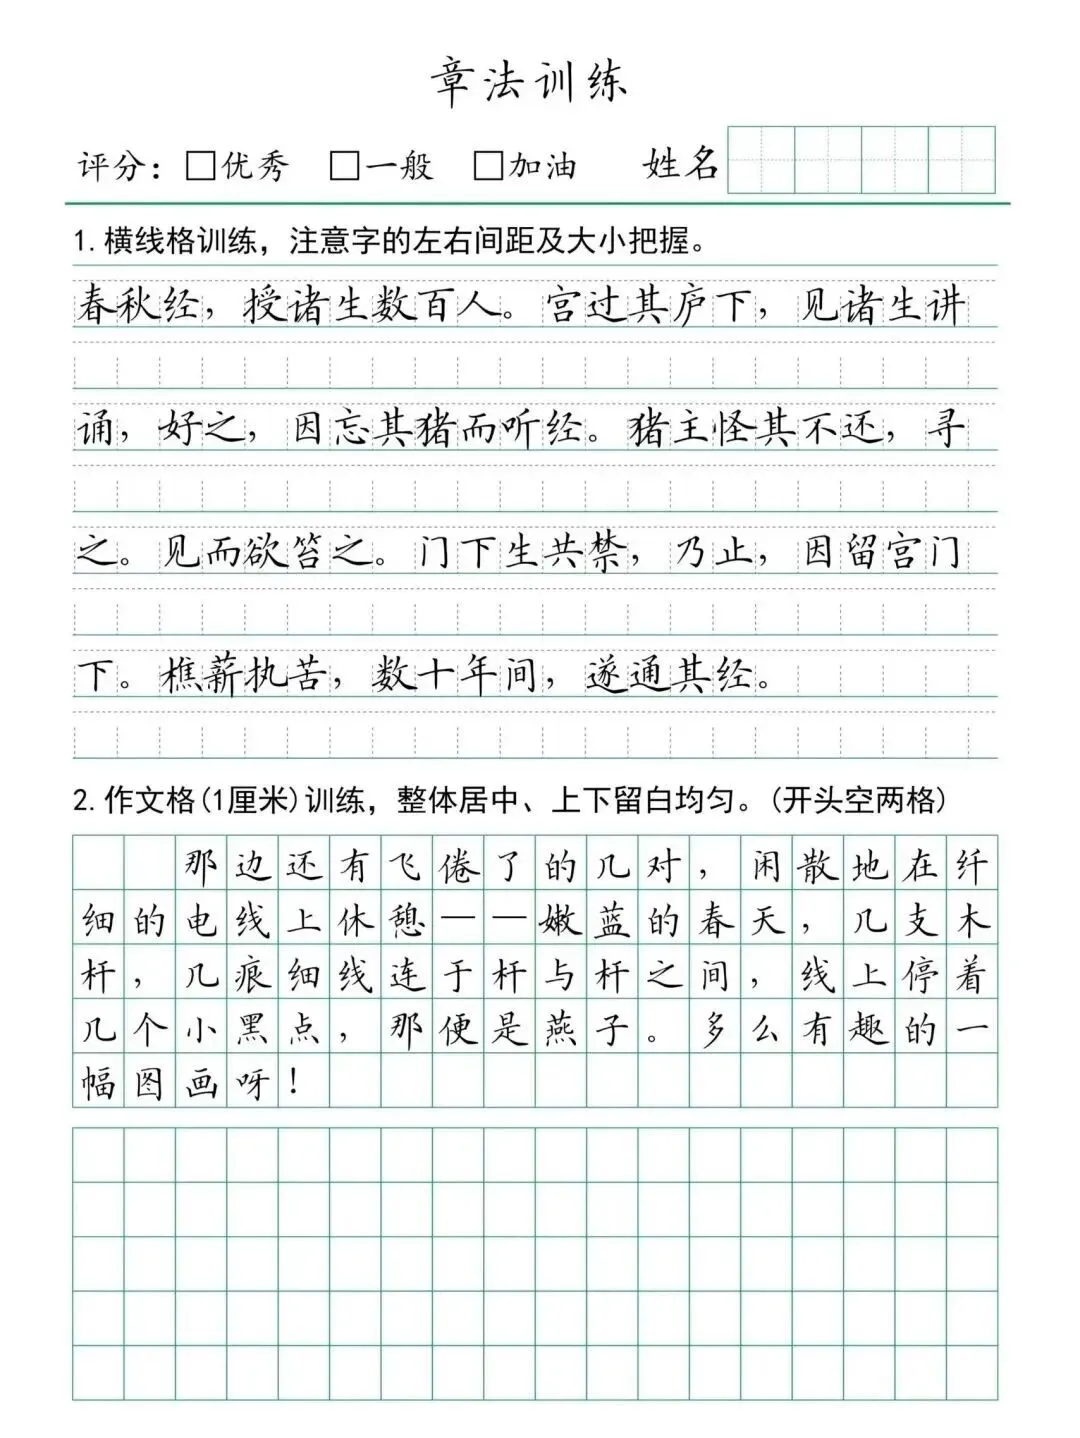 章法训练
评分：□优秀 □一般 □加油 姓名
1.横线格训练，注意字的左右间距及大小把握。
春秋经，授诸生数百人。宫过其庐下，见诸生讲
诵，好之，因忘其猪而听经。猪主怪其不还，寻
之。见而欲笞之。门下生共禁，乃止，因留宫门
下。樵薪执苦，数十年间，遂通其经。
2.作文格(1厘米)训练，整体居中、上下留白均匀。(开头空两格)
那边还有飞倦了的几对，闲散地在纤
细的电线上休憩——嫩蓝的春天，几支木
杆，几痕细线连于杆与杆之间，线上停着
几个小黑点，那便是燕子。多么有趣的一
幅图画呀！